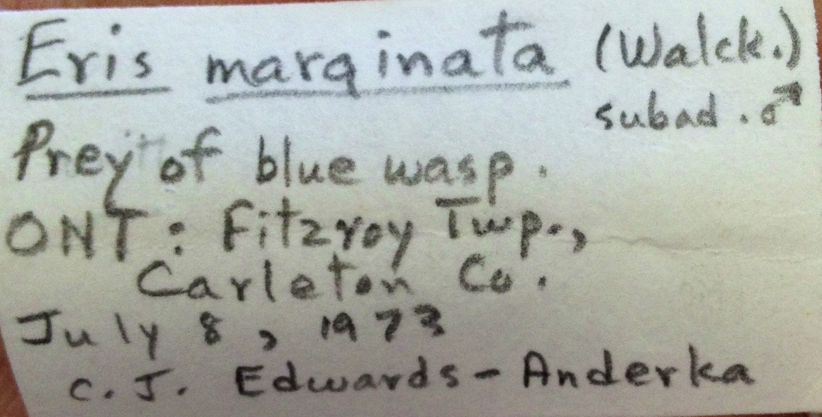 Eris marginata (Walck.)
subad. ♂
Prey of blue wasp.
ONT: Fitzroy Twp.,
Carleton Co.
July 8, 1973
C. J. Edwards-Anderka